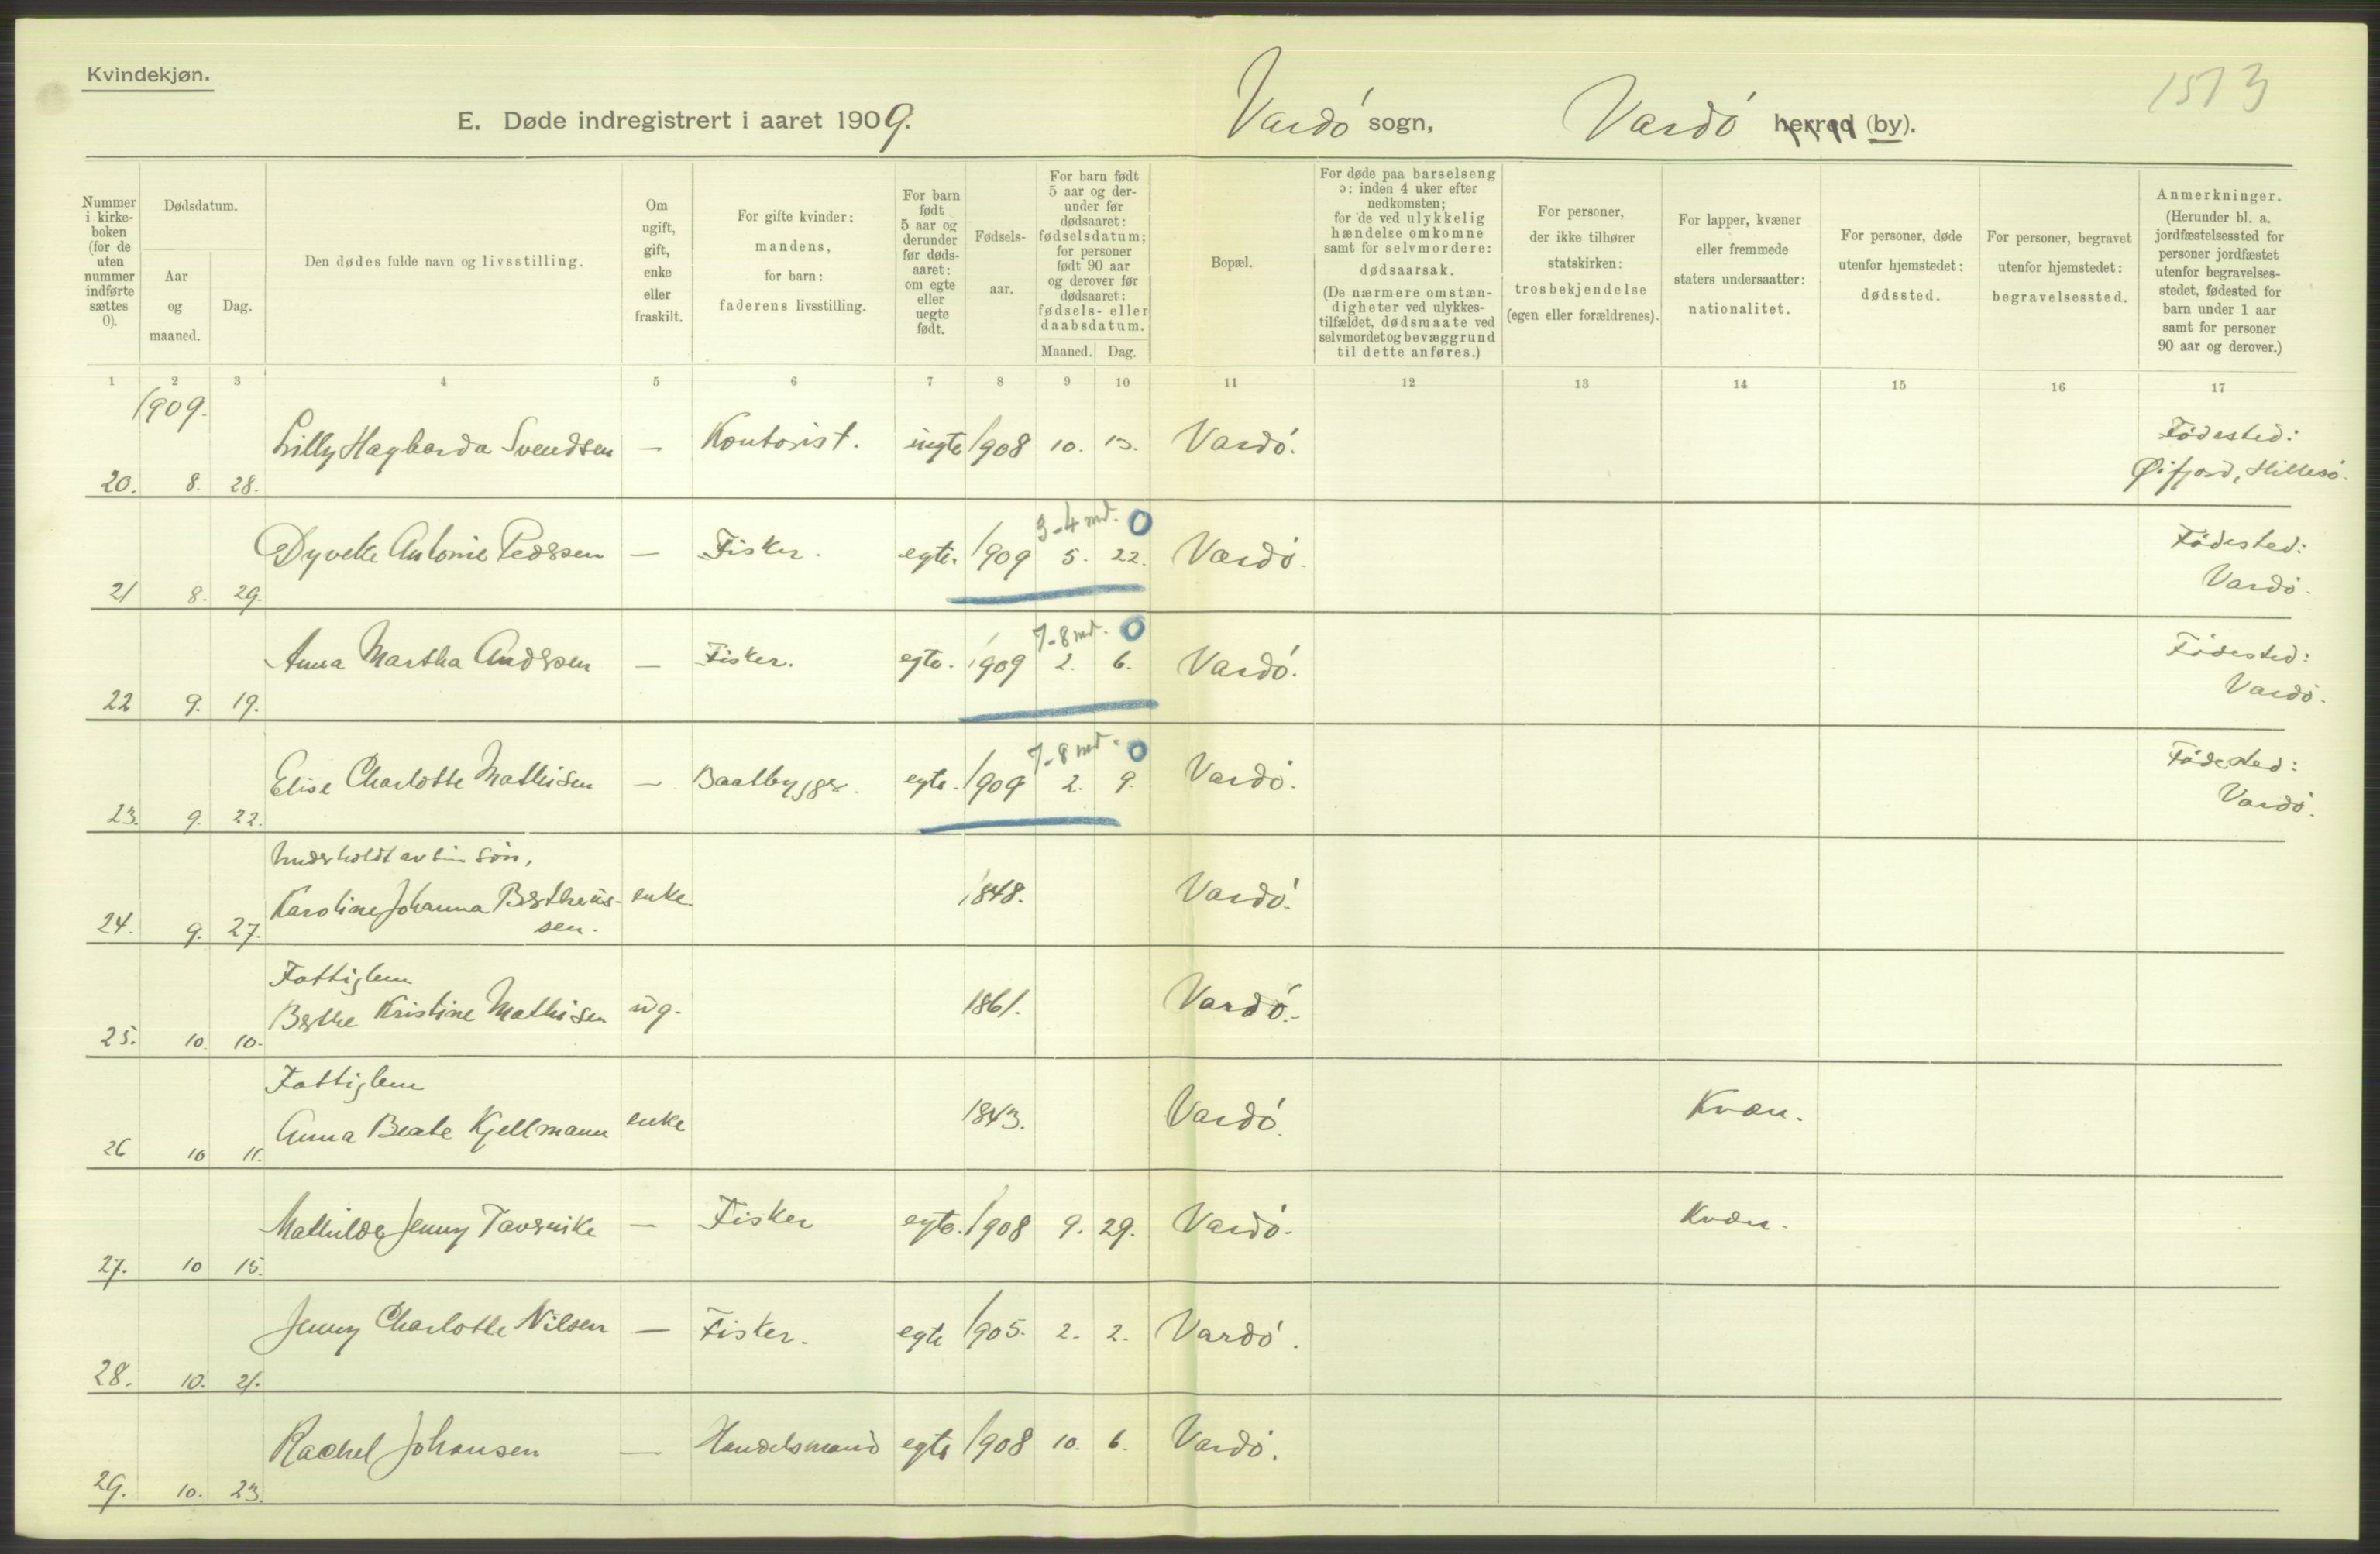 Kvindekjøn.
1513
E. Døde indregistrert i aaret 1909.
Vardó sogn, Vardó herred (by).
Nummer i kirke- boken (for de uten nummer indførte sættes 0).
Dødsdatum.
Aar og maaned.
Dag.
Den dødes fulde navn og livsstilling.
Om ugift, gift, enke eller fraskilt.
For gifte kvinder: mandens, for barn: faderens livsstilling.
For barn født 5 aar og derunder før døds- aaret: om egte eller uegte født.
Fødsels- aar.
For barn født 5 aar og der- under før dødsaaret: fødselsdatum; for personer født 90 aar og derover før dødsaaret: fødsels- eller daabsdatum.
Maaned. Dag.
Bopæl.
For døde paa barselseng ɔ: inden 4 uker efter nedkomsten; for de ved ulykkelig hændelse omkomne samt for selvmordere: dødsaarsak. (De nærmere omstæn- digheter ved ulykkes- tilfældet, dødsmaate ved selvmordet og bevæggrund til dette anføres.)
For personer, der ikke tilhører statskirken: trosbekjendelse (egen eller forældrenes).
For lapper, kvæner eller fremmede staters undersaatter: nationalitet.
For personer, døde utenfor hjemstedet: dødssted.
For personer, begravet utenfor hjemstedet: begravelsessted.
Anmerkninger. (Herunder bl. a. jordfæstelsessted for personer jordfæstet utenfor begravelses- stedet, fødested for barn under 1 aar samt for personer 90 aar og derover.)
1 2 3 4 5 6 7 8 9 10 11 12 13 14 15 16 17
1909.
20. 8. 28. Lilly Hagbarda Svendsen — Kontorist. uegte 1908 10. 13. Vardó. Fódested:
Øifjord, Hillesó.
3-4 md. 0
21 8. 29. Dyveke Antonie Pedersen — Fisker. egte. 1909 5. 22. Vardó. Fódested:
Vardó.
7-8 md. 0
22 9. 19. Anna Martha Andersen — Fisker. egte. 1909 2. 6. Vardó. Fódested:
Vardó.
7-8 md. 0
23. 9. 22. Elise Charlotte Mathisen — Baatbygger. egte. 1909 2. 9. Vardó. Fódested:
Vardó.
Underholdt av sin són,
24. 9. 27. Karoline Johanna Bertheus- enke. 1848. Vardó.
sen.
Fattiglem
25. 10. 10. Berthe Kristine Mathisen ug. 1861. Vardó.
Fattiglem
26 10 11. Anna Beate Kjellmann enke 1843. Vardó. Kvæn.
27. 10 15. Mathilde Jenny Tavernike — Fisker egte. 1908 9. 29. Vardó. Kvæn.
28. 10. 21. Jenny Charlotte Nilsen — Fisker. egte 1905. 2. 2. Vardó.
29. 10. 23. Rachel Johansen — Handelsmand egte 1908 10. 6. Vardó.